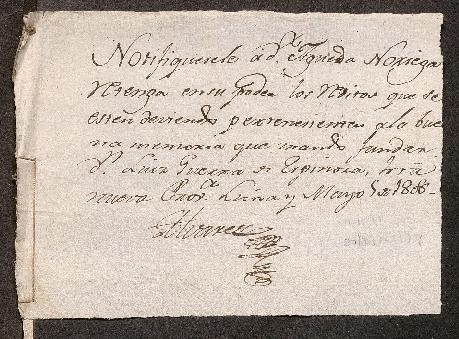 Notifiquesele a d.ª Agueda Noriega
retenga en su poder los réditos que se
esten deviendo pertenesientes a la bue
na memoria que mando fundar
D.n Luis Guerra de Espinosa, hasta
nueva Prov.ª Lima y Mayo 5 de
Alvarez